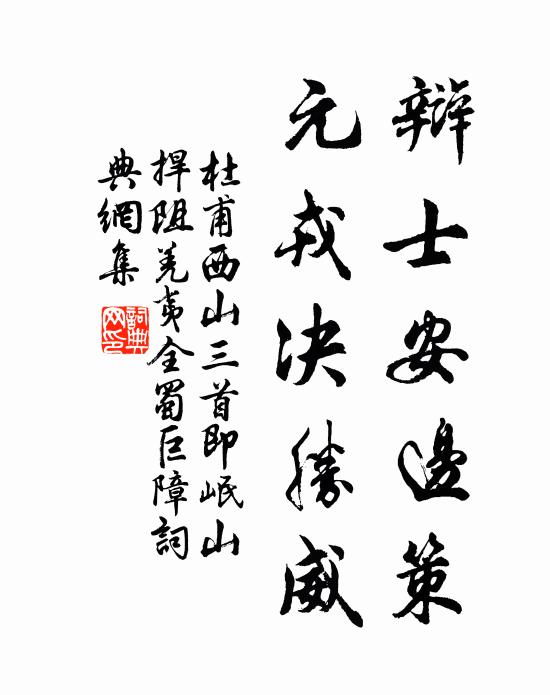 辯士安邊策
元戎决勝威
杜甫西山三首即岷山
捍阻羌夷全蜀巨障詞
典網集
詞典网印